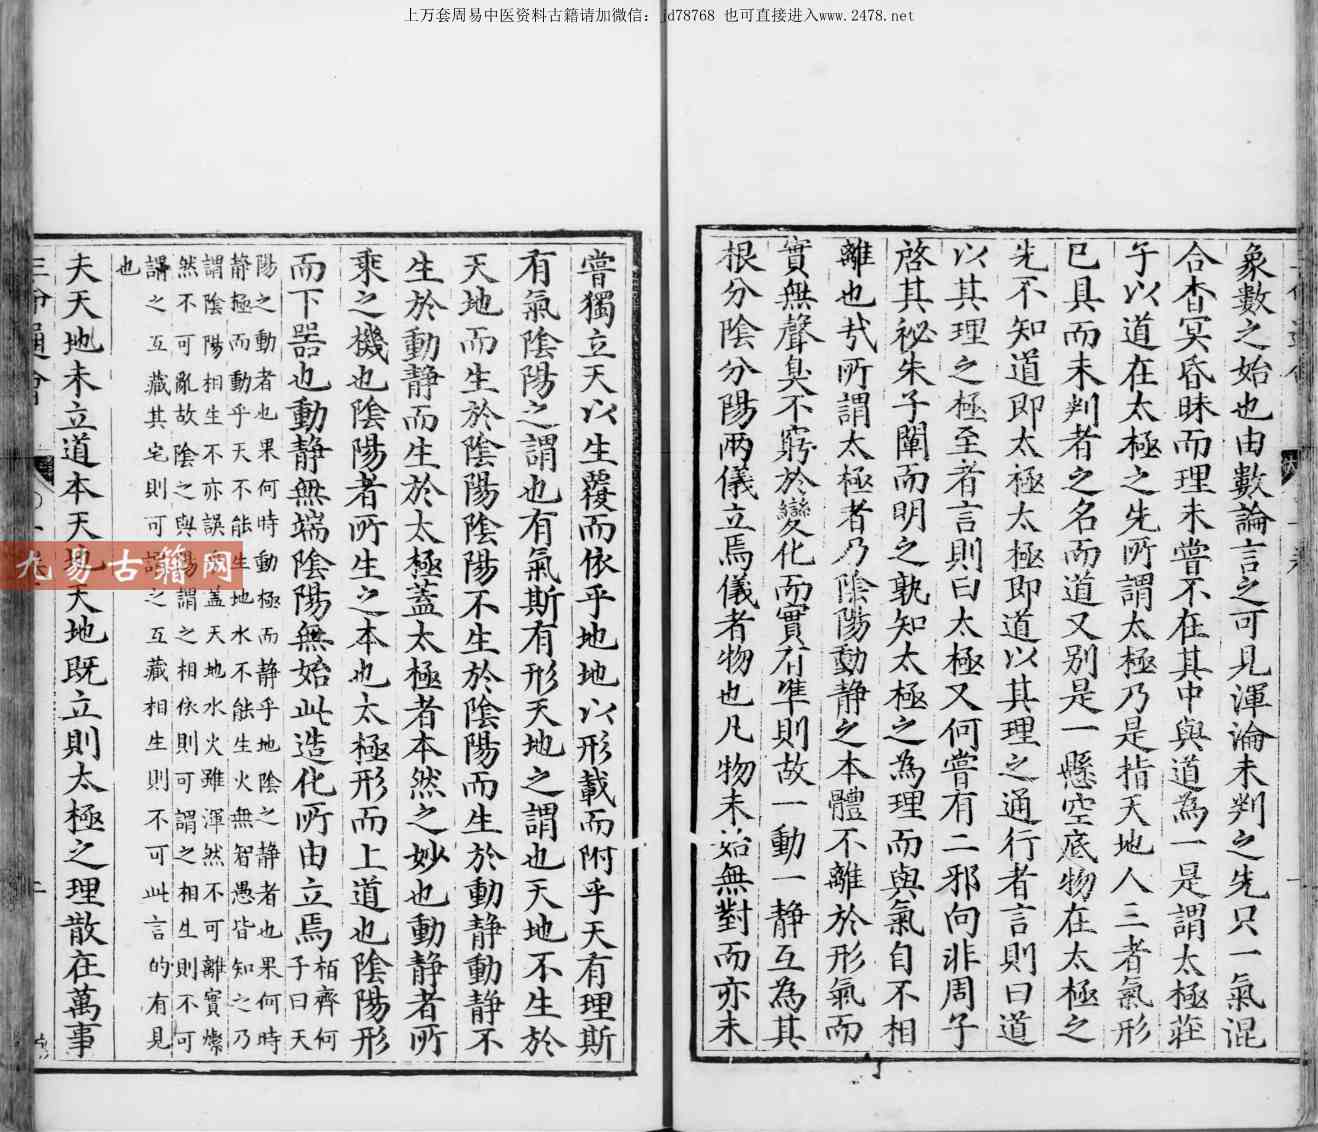 上万套周易中医资料古籍请加微信：jd78768 也可直接进入www.2478.net
象數之始也由數論言之可見渾淪未判之先只一氣混
合杳冥昏昧而理未嘗不在其中與道為一是謂太極莊
子以道在太極之先所謂太極乃是指天地人三者氣形
已具而未判者之名而道又别是一懸空底物在太極之
先不知道即太極太極即道以其理之通行者言則曰道
以其理之極至者言則曰太極又何嘗有二邪向非周子
啓其祕朱子闡而明之孰知太極之為理而與氣自不相
離也㢤所謂太極者乃陰陽動静之本體不離於形氣而
實無聲臭不窮於變化而實有凖則故一動一静互為其
根分陰分陽兩儀立焉儀者物也凡物未始無對而亦未
嘗獨立天以生覆而依乎地地以形載而附乎天有理斯
有氣陰陽之謂也有氣斯有形天地之謂也天地不生於
天地而生於陰陽陰陽不生於陰陽而生於動静動静不
生於動静而生於太極蓋太極者本然之妙也動静者所
乘之機也陰陽者所生之本也太極形而上道也陰陽形
而下噐也動静無端陰陽無始此造化所由立焉
栢齊何
子曰天
陽之動者也果何時動極而静乎地陰之静者也果何時
静極而動乎天不能生地水不能生火無智愚皆知之乃
謂陰陽相生不亦誤蓋天地水火雖渾然不可離實燦
然不可亂故陰之與陽謂之相依則可謂之相生則不可
謂之互藏其宅則可謂之互藏相生則不可此言的有見
也
夫天地未立道本天地天地既立則太極之理散在萬事
三命通會
九易古籍网